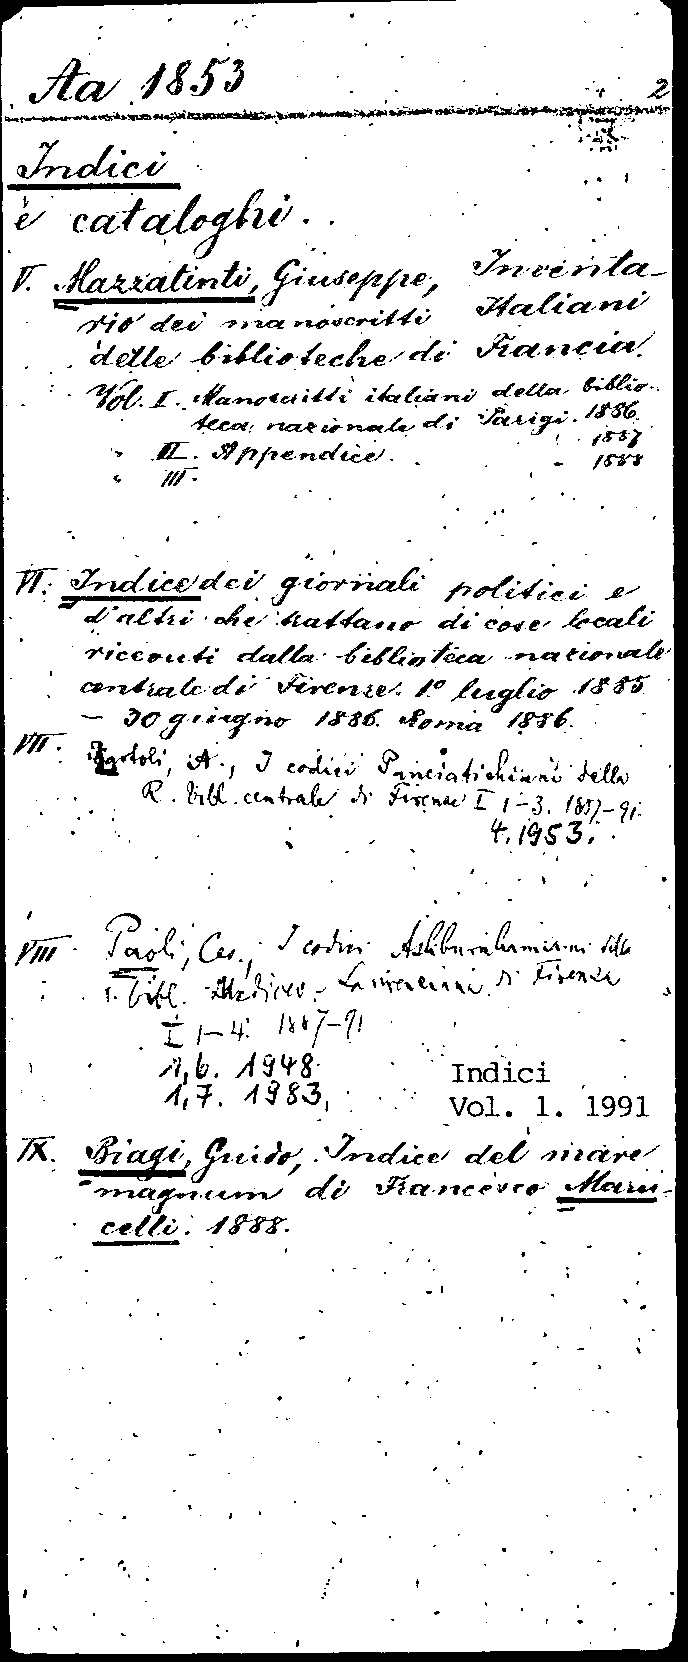 Aa 1853 2
Indici
e cataloghi.
V. Mazzatinti, Giuseppe, Inventa-
rio dei manoscritti Italiani
delle biblioteche di Francia.
Vol. I. Manoscritti italiani della biblio-
teca nazionale di Parigi. 1886
" II. Appendice. " 1887
" III. - 1888
VI. Indice dei giornali politici e
d'altri che trattano di cose locali
ricevuti dalla biblioteca nazionale
centrale di Firenze. 1.º luglio 1885
– 30 giugno 1886. Roma 1886.
VII. Bartoli, A., I codici Panciatichiani della
R. Bibl. centrale di Firenze I 1-3. 1887-91.
4. 1953.
VIII Paoli, Ces., I codici Ashburnhamiani della
r. bibl. Mediceo-Laurenziana di Firenze
I 1-4. 1887-91
1,6. 1948
1,7. 1983,
Indici
Vol. 1. 1991
IX. Biagi, Guido, Indice del mare
magnum di Francesco Maru-
celli. 1888.